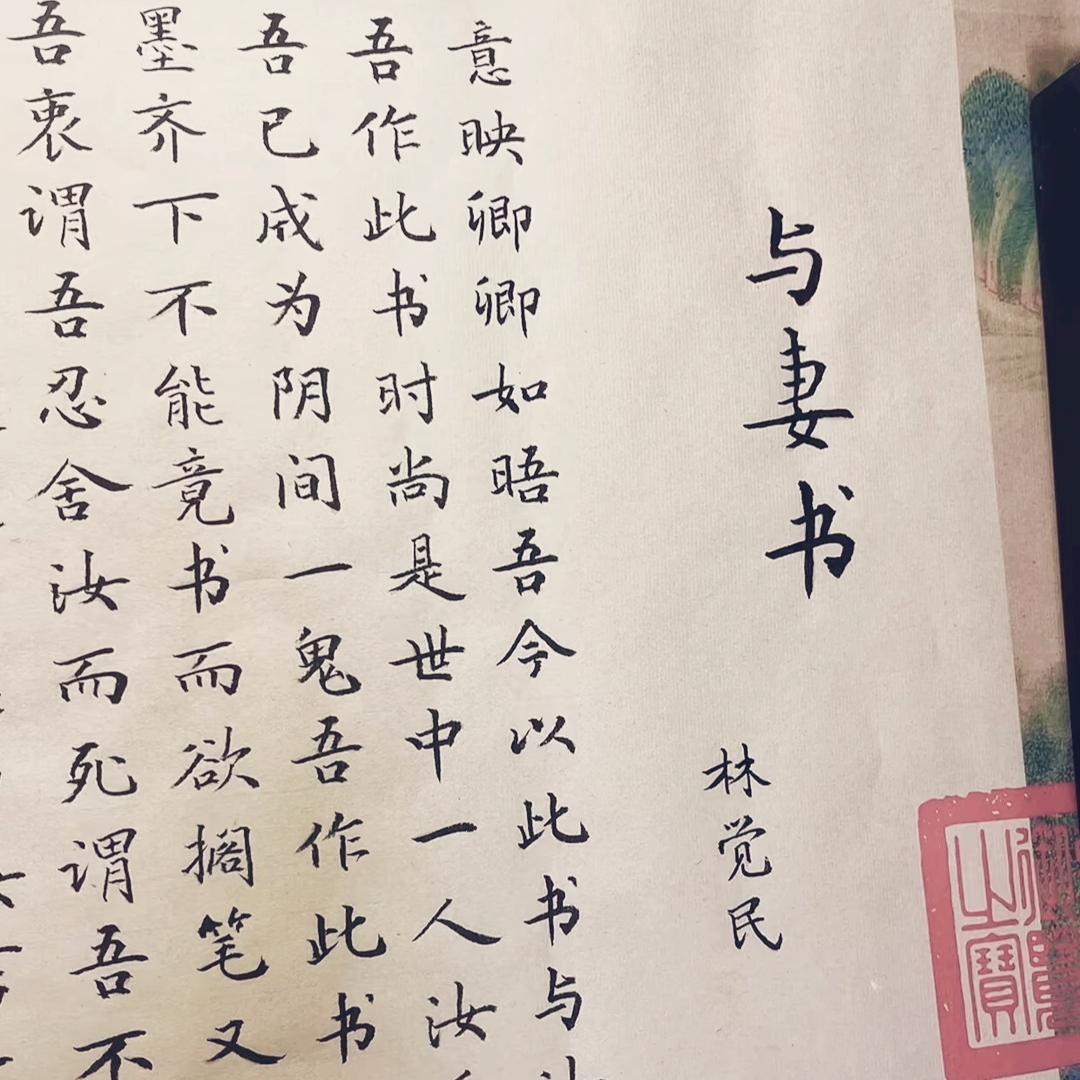 与妻书
林觉民
意映卿卿如晤吾今以此书与
吾作此书时尚是世中一人汝
吾已成为阴间一鬼吾作此书
墨齐下不能竟书而欲搁笔又
吾衷谓吾忍舍汝而死谓吾不
之寶